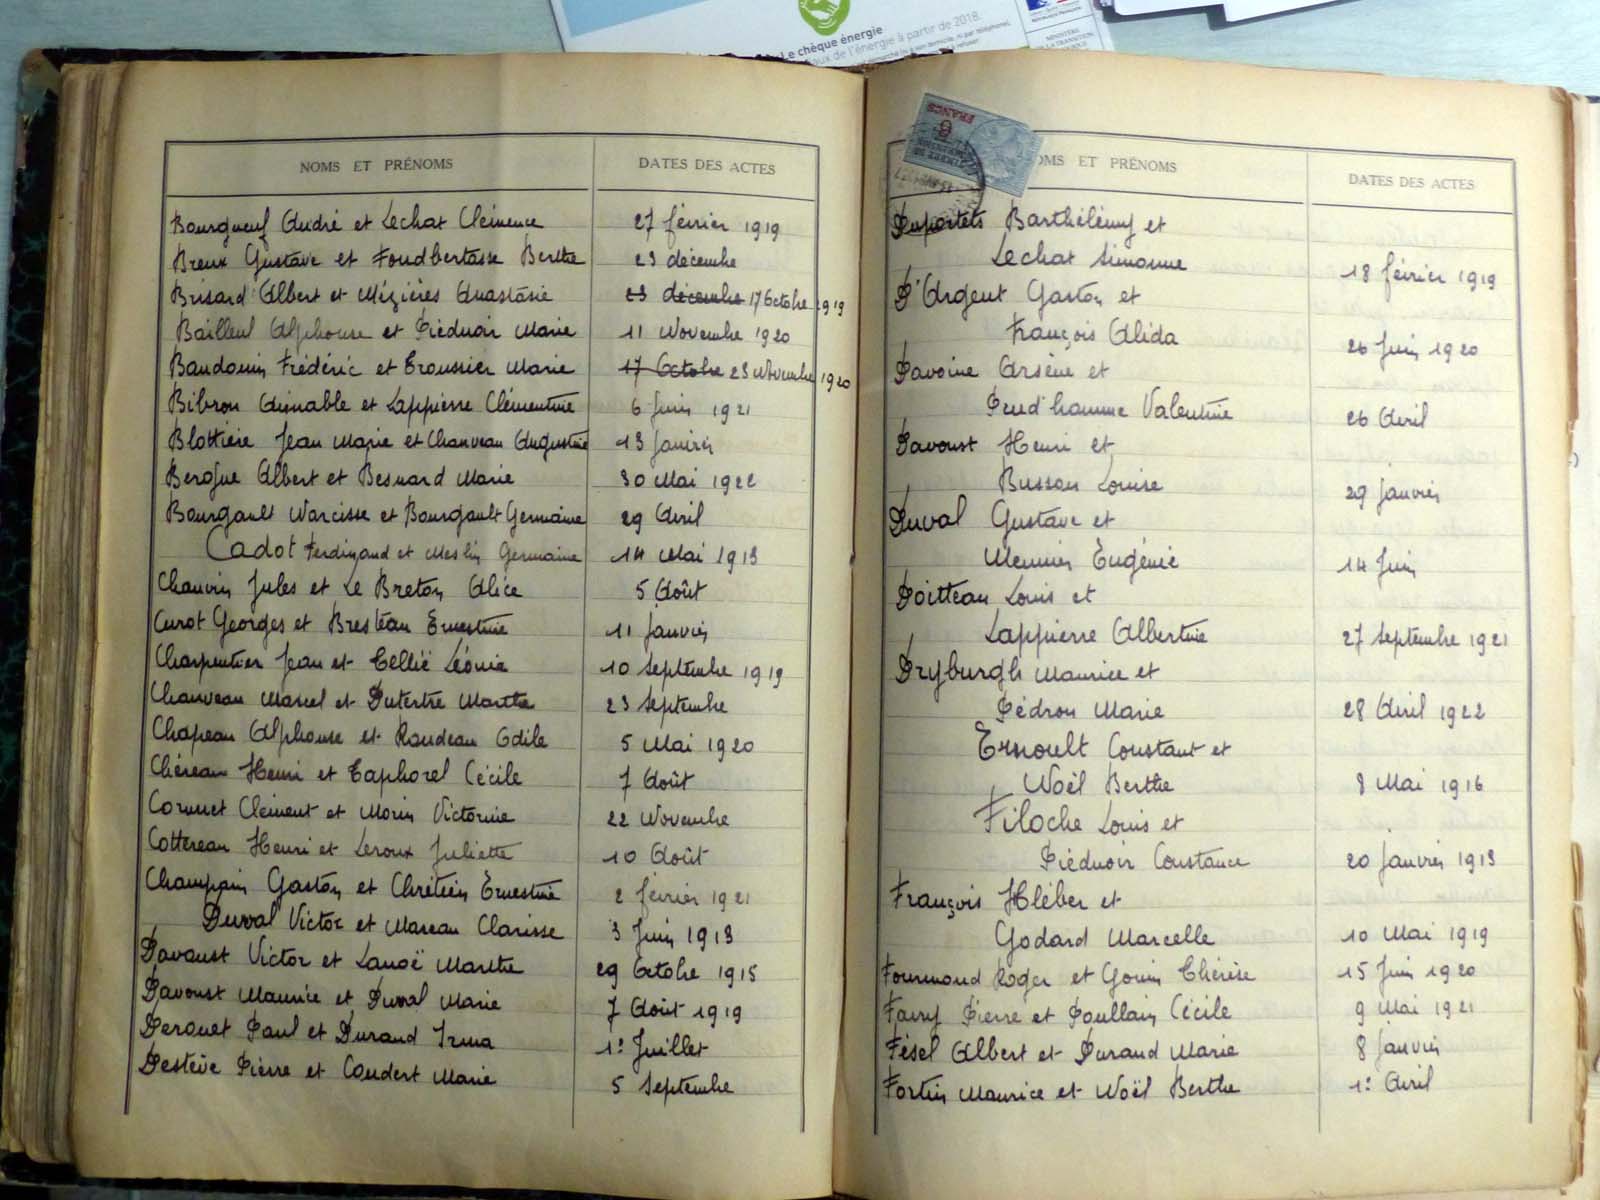 Le chèque énergie
de l'énergie à partir de 2018.
NOMS ET PRÉNOMS
DATES DES ACTES
Bourgneuf André et Lechat Clémence 27 février 1919
Breux Gustave et Foudbertasse Berthe 23 décembre
Brisard Albert et Mézières Anastasie 23 décembre 17 Octobre 1919
Bailleul Alphonse et Piéduoir Marie 11 Novembre 1920
Baudouin Frédéric et Troussier Marie 17 Octobre 23 Novembre 1920
Bibron Aimable et Lappierre Clémentine 6 Juin 1921
Blottière Jean Marie et Chauveau Augustine 13 Janvier
Bergue Albert et Besnard Marie 30 Mai 1922
Bourgault Narcisse et Bourgault Germaine 29 Avril
Cadot Ferdinand et Meslin Germaine 14 Mai 1913
Chauvin Jules et Le Breton Alice 5 Août
Curot Georges et Bresteau Ernestine 11 Janvier
Charpentier Jean et Cellié Léonie 10 Septembre 1919
Chauveau Marcel et Dutertre Marthe 23 Septembre
Chapeau Alphonse et Raudeau Odile 5 Mai 1920
Chéreau Henri et Taphorel Cécile 7 Août
Cornuet Clément et Morin Victorine 22 Novembre
Cottereau Henri et Leroux Juliette 10 Août
Champain Gaston et Chrétien Ernestine 2 février 1921
Duval Victor et Mareau Clarisse 3 Juin 1913
Davoust Victor et Lanoë Marthe 29 Octobre 1915
Davoust Maurice et Duval Marie 7 Août 1919
Derouet Paul et Durand Irma 1: Juillet
Destève Pierre et Coudert Marie 5 Septembre
FRANCS
OMS ET PRÉNOMS
DATES DES ACTES
Duportets Barthélémy et
Lechat Simonne 18 février 1919
D'Argent Gaston et
François Alida 26 Juin 1920
Davoine Arsène et
Prud'homme Valentine 26 Avril
Davoust Henri et
Busson Louise 29 Janvier
Duval Gustave et
Meunier Eugénie 14 Juin
Doitteau Louis et
Lappierre Albertine 27 Septembre 1921
Dryburgh Maurice et
Pédron Marie 28 Avril 1922
Ernoult Constant et
Noël Berthe 8 Mai 1916
Filoche Louis et
Piéduoir Constance 20 Janvier 1913
François Kléber et
Godard Marcelle 10 Mai 1919
Fourmond Roger et Gouin Thérèse 15 Juin 1920
Favry Pierre et Poullain Cécile 9 Mai 1921
Fésel Albert et Durand Marie 8 Janvier
Fortin Maurice et Noël Berthe 1: Avril